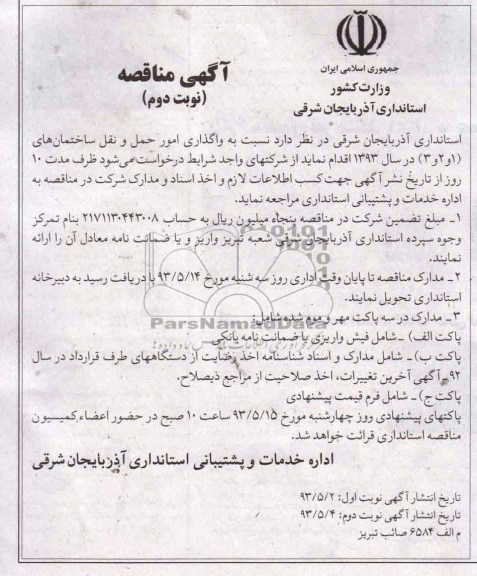 جمهوری اسلامی ایران
وزارت کشور
استانداری آذربایجان شرقی
آگهی مناقصه
(نوبت دوم)
استانداری آذربایجان شرقی در نظر دارد نسبت به واگذاری امور حمل و نقل ساختمان‌های
(۱و۲و۳) در سال ۱۳۹۳ اقدام نماید از شرکتهای واجد شرایط درخواست می‌شود ظرف مدت ۱۰
روز از تاریخ نشر آگهی جهت کسب اطلاعات لازم و اخذ اسناد و مدارک شرکت در مناقصه به
اداره خدمات و پشتیبانی استانداری مراجعه نماید.
۱ـ مبلغ تضمین شرکت در مناقصه پنجاه میلیون ریال به حساب ۲۱۷۱۱۳۰۴۴۳۰۰۸ بنام تمرکز
وجوه سپرده استانداری آذربایجان شرقی شعبه تبریز واریز و یا ضمانت نامه معادل آن را ارائه
نمایند.
۲ـ مدارک مناقصه تا پایان وقت اداری روز سه شنبه مورخ ۹۳/۵/۱۴ با دریافت رسید به دبیرخانه
استانداری تحویل نمایند.
۳ـ مدارک در سه پاکت مهر و موم شده شامل:
پاکت الف) ـ شامل فیش واریزی یا ضمانت نامه بانکی
پاکت ب) ـ شامل مدارک و اسناد شناسنامه اخذ رضایت از دستگاههای طرف قرارداد در سال
۹۲ـ آگهی آخرین تغییرات، اخذ صلاحیت از مراجع ذیصلاح.
پاکت ج) ـ شامل فرم قیمت پیشنهادی
پاکتهای پیشنهادی روز چهارشنبه مورخ ۹۳/۵/۱۵ ساعت ۱۰ صبح در حضور اعضاء کمیسیون
مناقصه استانداری قرائت خواهد شد.
اداره خدمات و پشتیبانی استانداری آذربایجان شرقی
تاریخ انتشار آگهی نوبت اول: ۹۳/۵/۲
تاریخ انتشار آگهی نوبت دوم: ۹۳/۵/۴
م الف ۶۵۸۴ صائب تبریز
ParsNamadData